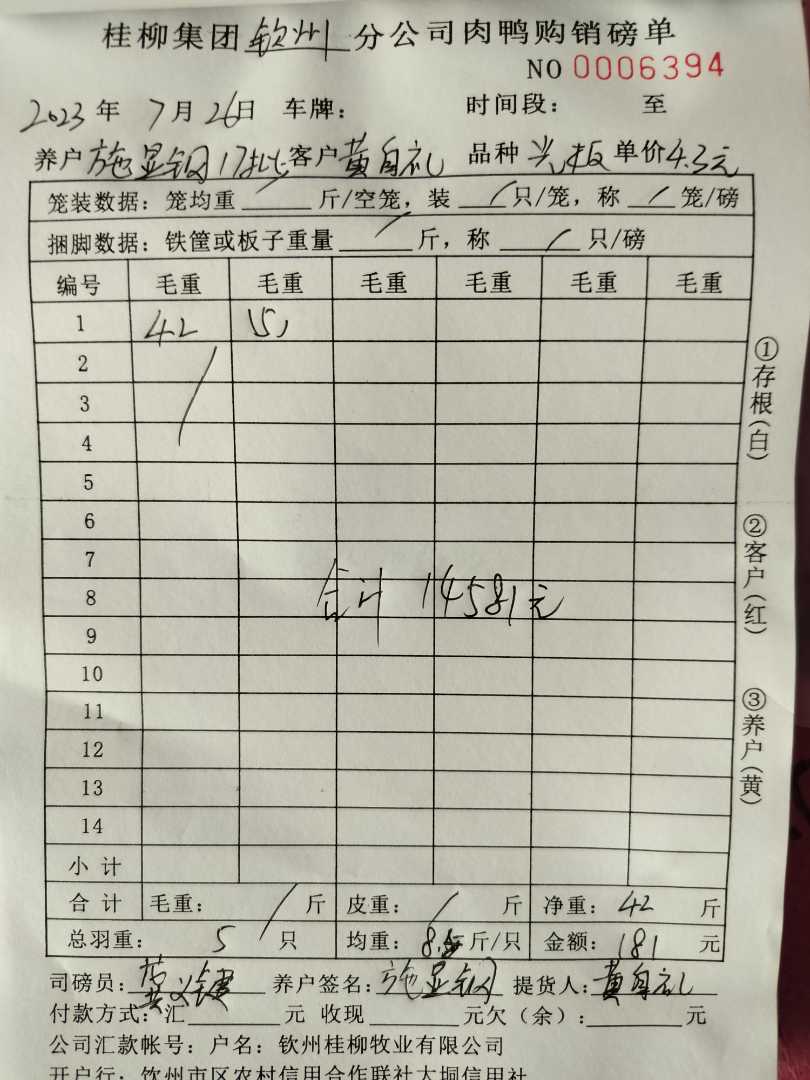 桂柳集团 钦州 分公司肉鸭购销磅单
NO 0006394
2023年 7月 26日 车牌： 时间段： 至
养户 施显钢17批 客户 黄自礼 品种 光板 单价4.3元
笼装数据：笼均重 / 斤/空笼，装 / 只/笼，称 / 笼/磅
捆脚数据：铁筐或板子重量 / 斤，称 / 只/磅
编号 毛重 毛重 毛重 毛重 毛重 毛重
1 42 5/
2
3
4
5
6
7
8 合计 14581元
9
10
11
12
13
14
小计
合计 毛重： / 斤 皮重： / 斤 净重：42 斤
总羽重： 5 只 均重： 斤/只 金额：181 元
司磅员： 养户签名：施显钢 提货人：黄自礼
付款方式：汇 元 收现 元欠（余）： 元
公司汇款帐号：户名：钦州桂柳牧业有限公司
开户行：钦州市区农村信用合作联社大垌信用社
①存根（白）
②客户（红）
③养户（黄）